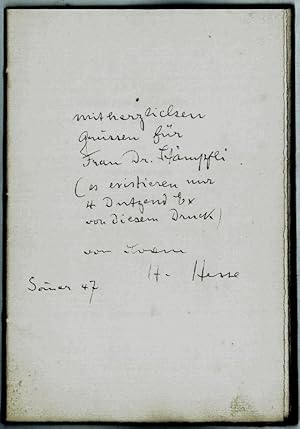 mit herzlichen
Grüssen für
Frau Dr. Kämpfli
(es existieren nur
4 Dutzend Ex
von diesem Druck)
von Ihrem
H. Hesse
47